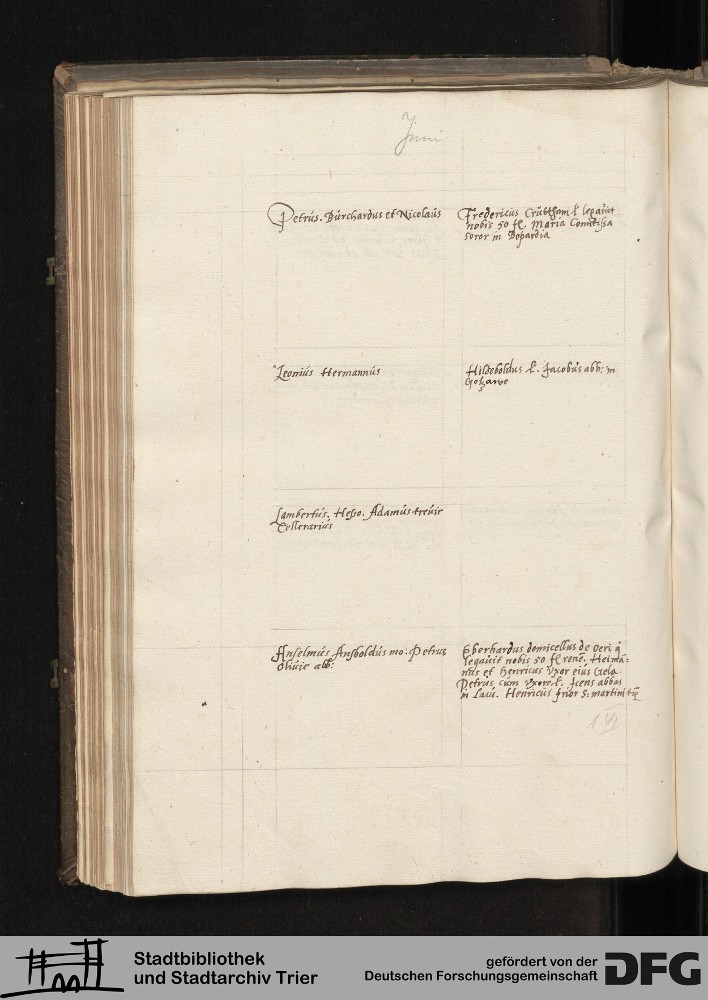 Juni
Petrus. Burchardus et Nicolaus
Fredericus l legavit
nobis 50 fl. Maria Comitissa
soror in Bopardia
Leonius Hermannus
Hildeboldus l. Jacobus abb: in
Lambertus. Hesso. Adamus trevir
Cellerarius
Anselmus Ansboldus mo: Petrus
Olivie abb:
Eberhardus domicellus de Veri q
legavit nobis 50 fl renen. Herma-
nus et Henricus Uxor eius Gela
Petrus cum uxore. l. abbas
in Lacu. Henricus prior S: martini
Stadtbibliothek
und Stadtarchiv Trier
gefördert von der
Deutschen Forschungsgemeinschaft
DFG